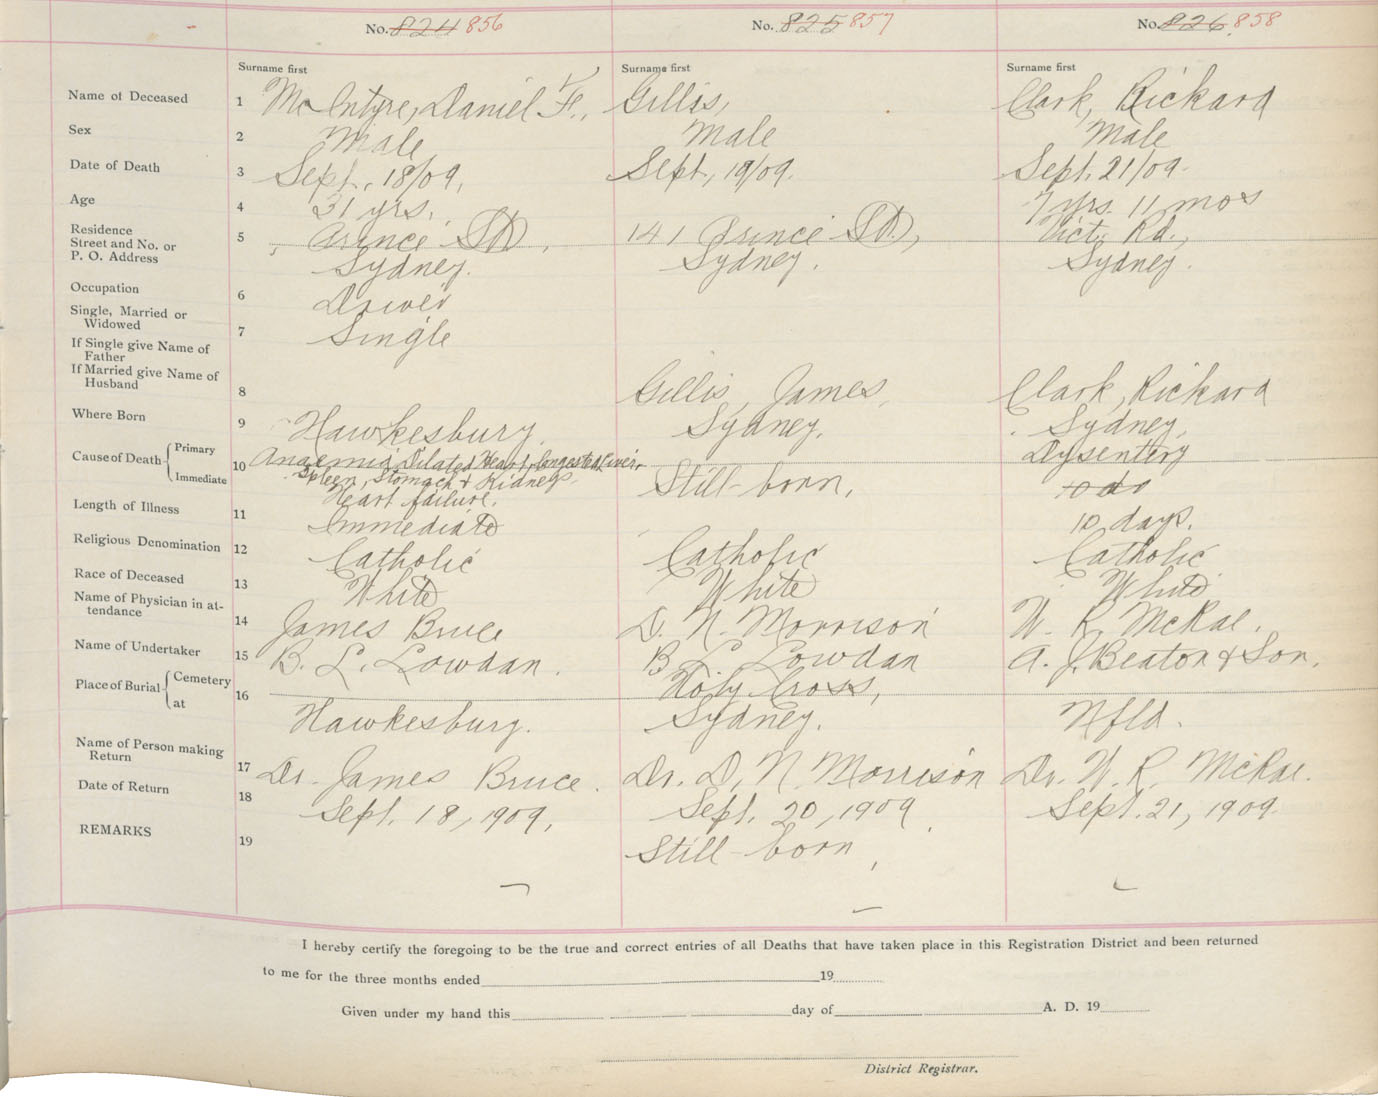 No. 824 856
No. 825 857
No. 826 858
Surname first
Surname first
Surname first
Name of Deceased 1 McIntyre, Daniel F., Gillis, Clark, Rickard
Sex 2 Male Male Male
Date of Death 3 Sept. 18/09, Sept, 19/09. Sept. 21/09.
Age 4 31 yrs. 7 yrs. 11 mos
Residence
Street and No. or
P. O. Address
5 Prince St, 141 Prince St, Vict. Rd.,
Sydney. Sydney. Sydney.
Occupation 6 Driver
Single, Married or
Widowed
7 Single
If Single give Name of
Father
If Married give Name of
Husband
8 Gillis, James, Clark, Rickard
Where Born 9 Hawkesbury. Sydney. Sydney,
Cause of Death Primary
Immediate
10 Anaemia, Dilated Heart, Congested Liver, Still-born, Dysentery
Spleen, Stomach & Kidneys. 10 do
Heart failure.
Length of Illness 11 Immediate 10 days.
Religious Denomination 12 Catholic Catholic Catholic
Race of Deceased 13 White White White
Name of Physician in at-
tendance
14 James Bruce D. N. Morrison W. R. McRae.
Name of Undertaker 15 B. L. Lowdan. B L. Lowdan A. J. Beaton & Son.
Place of Burial Cemetery
at
16 Holy Cross,
Hawkesbury. Sydney. Nfld.
Name of Person making
Return
17 Dr. James Bruce. Dr. D. N Morrison Dr. W. R. McRae.
Date of Return 18 Sept. 18, 1909, Sept. 20, 1909 Sept. 21, 1909.
REMARKS 19 Still-born,
I hereby certify the foregoing to be the true and correct entries of all Deaths that have taken place in this Registration District and been returned
to me for the three months ended 19
Given under my hand this day of A. D. 19
District Registrar.